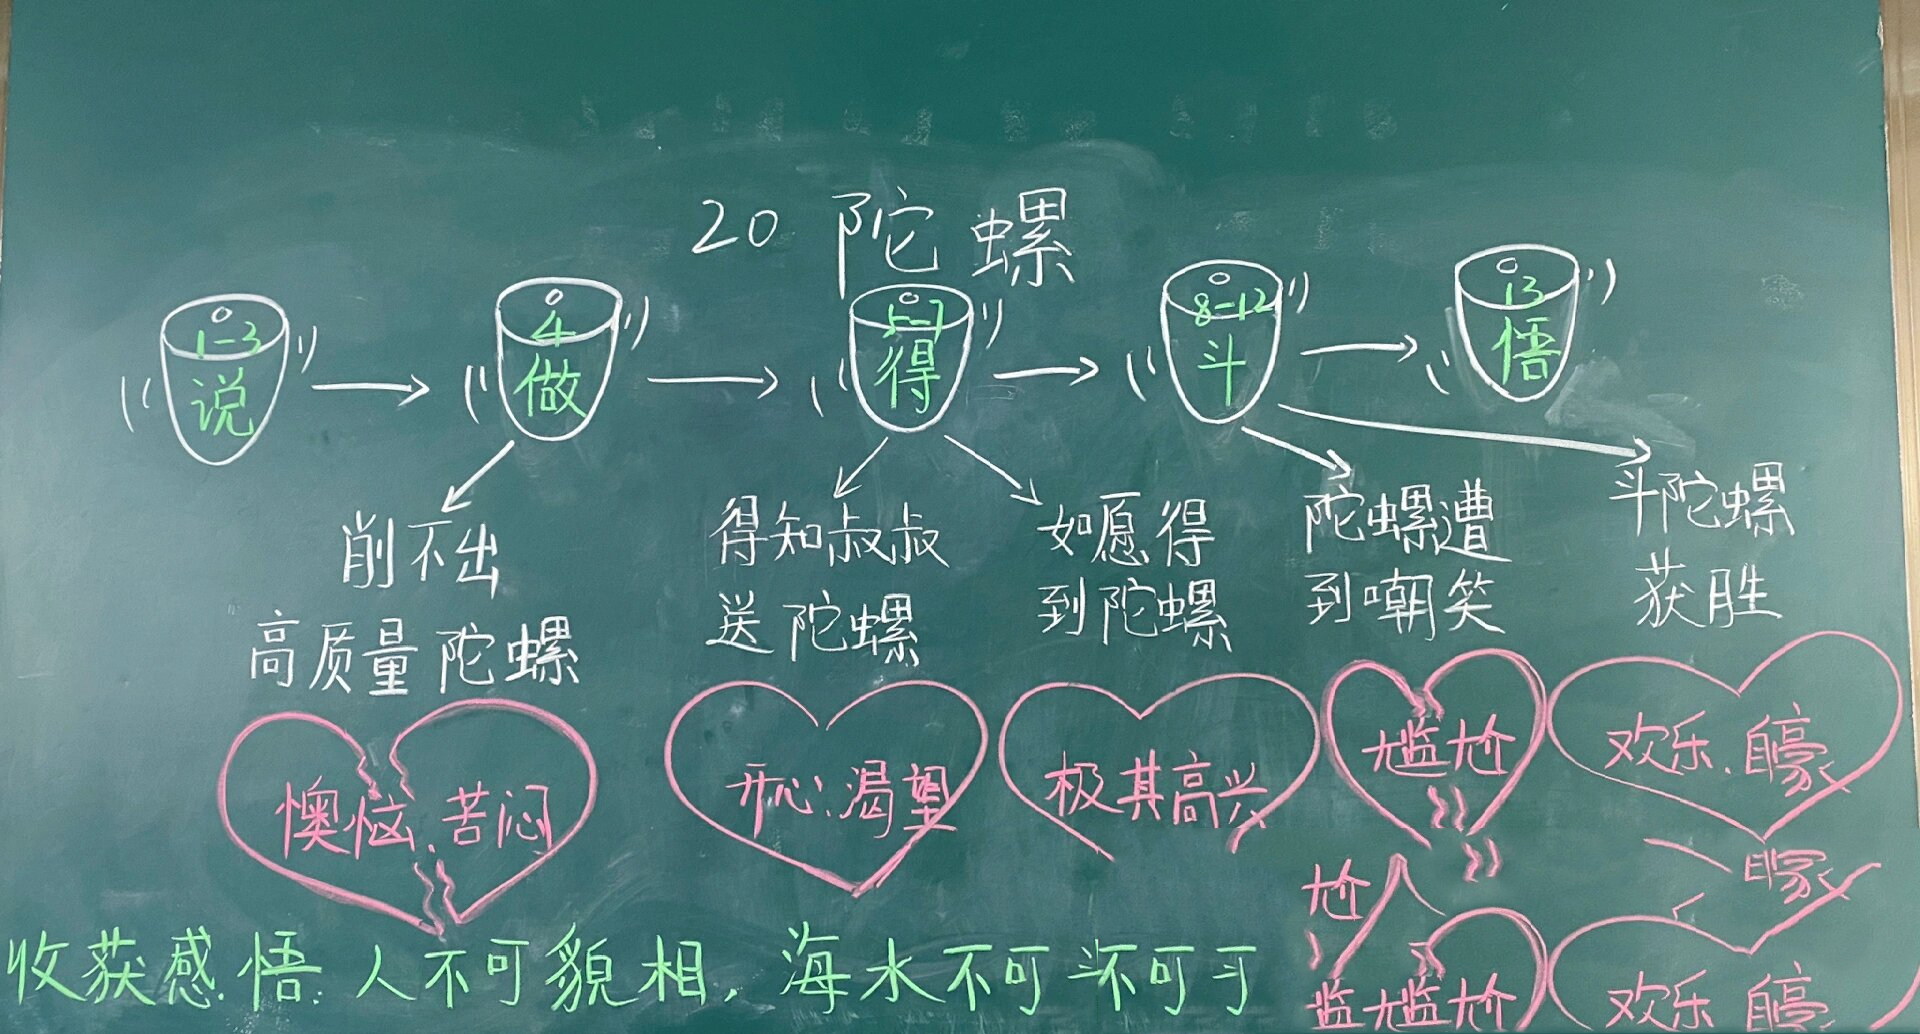 20 陀螺
1-3 4 5-7 8-12 13
说 做 得 斗 悟
削不出
高质量陀螺
得知叔叔
送陀螺
如愿得
到陀螺
陀螺遭
到嘲笑
斗陀螺
获胜
懊恼、苦闷
开心、渴望
极其高兴
尴尬
欢乐、自豪
尬
尴尬
欢乐、自豪
收获感悟:人不可貌相,海水不可